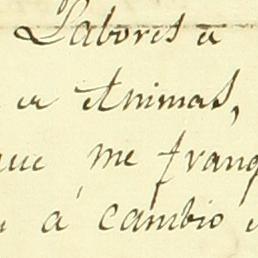 Labores á
er Animas,
que me franq
á cambio